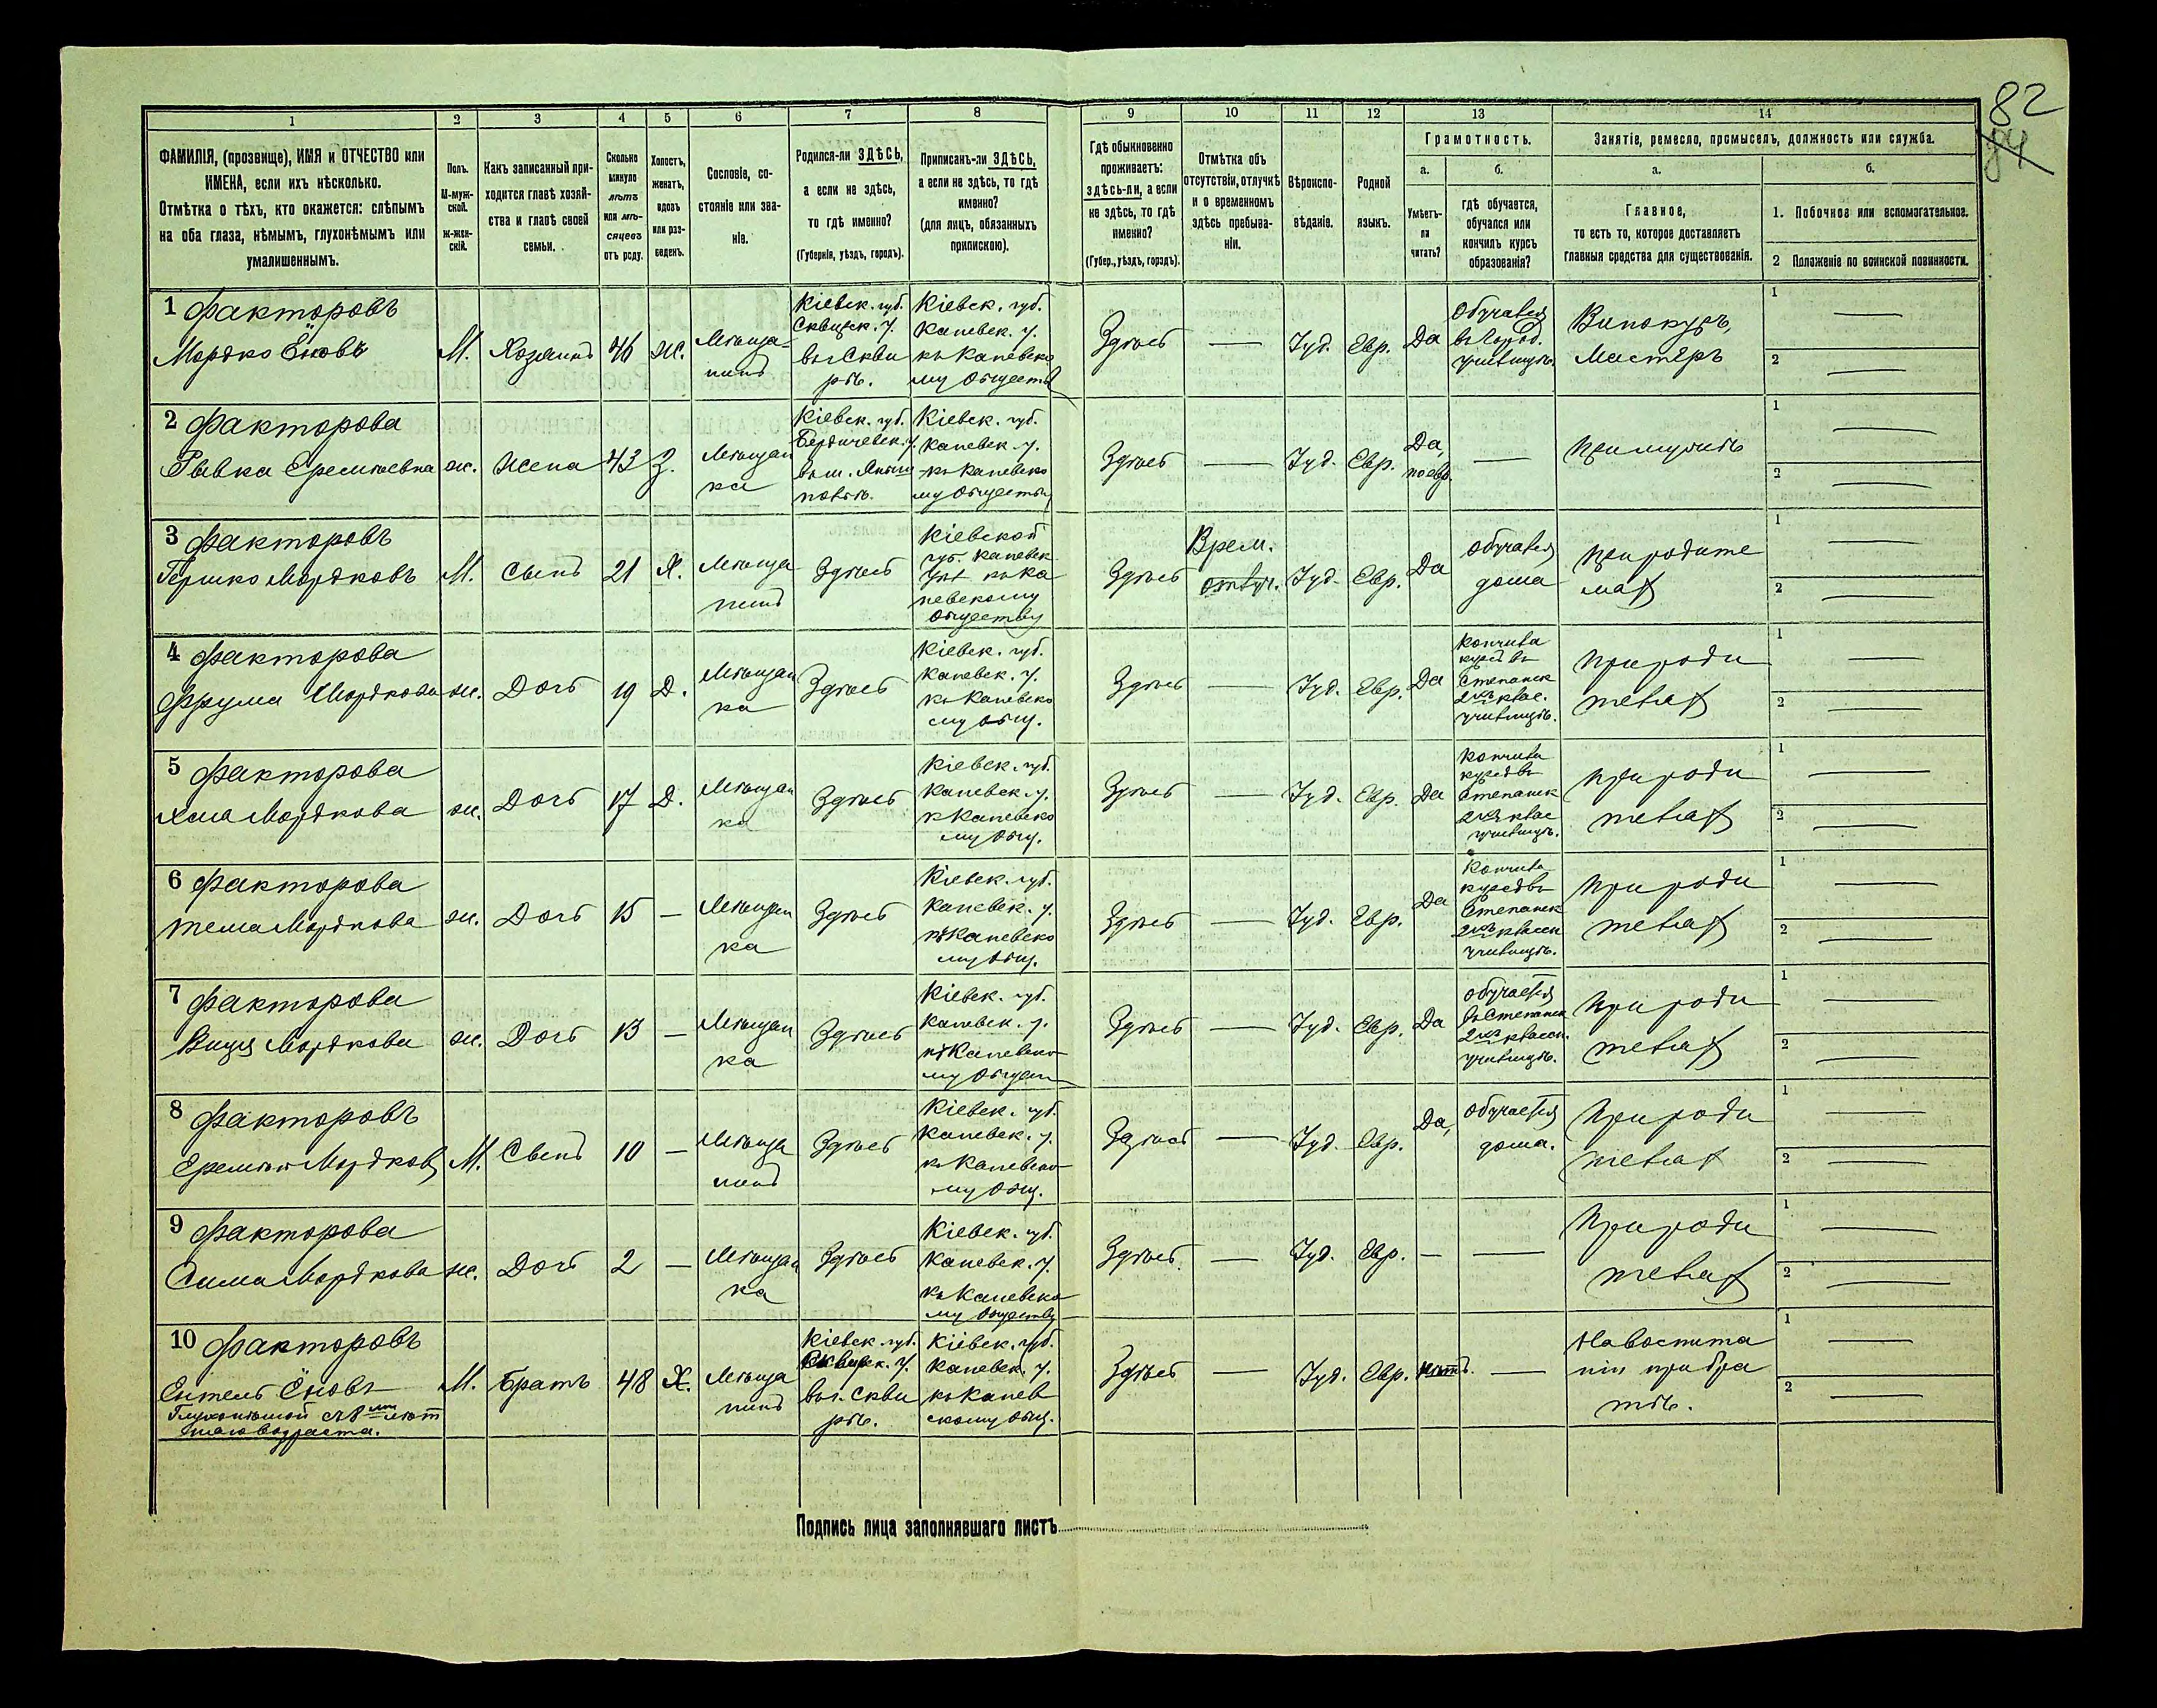 82
84
1 2 3 4 5 6 7 8 9 10 11 12 13 14
ФАМИЛІЯ, (прозвище), ИМЯ и ОТЧЕСТВО или
ИМЕНА, если ихъ нѣсколько.
Отмѣтка о тѣхъ, кто окажется: слѣпымъ
на оба глаза, нѣмымъ, глухонѣмымъ или
умалишеннымъ.
Полъ.
М-муж-
ской.
Ж-жен-
скій.
Какъ записанный при-
ходится главѣ хозяй-
ства и главѣ своей
семьи.
Сколько
минуло
лѣтъ
или мѣ-
сяцевъ
отъ роду.
Холостъ,
женатъ,
вдовъ
или раз-
веденъ.
Сословіе, со-
стояніе или зва-
ніе.
Родился-ли ЗДѢСЬ,
а если не здѣсь,
то гдѣ именно?
(Губернія, уѣздъ, городъ).
Приписанъ-ли ЗДѢСЬ,
а если не здѣсь, то гдѣ
именно?
(для лицъ, обязанныхъ
припискою).
Гдѣ обыкновенно
проживаетъ:
здѣсь-ли, а если
не здѣсь, то гдѣ
именно?
(Губер., уѣздъ, городъ).
Отмѣтка объ
отсутствіи, отлучкѣ
и о временномъ
здѣсь пребыва-
ніи.
Вѣроиспо-
вѣданіе.
Родной
языкъ.
Грамотность.
а.
Умѣетъ-
ли
читать?
б.
гдѣ обучается,
обучался или
кончилъ курсъ
образованія?
Занятіе, ремесло, промыселъ, должность или служба.
а.
Главное,
то есть то, которое доставляетъ
главныя средства для существованія.
б.
1. Побочное или вспомогательное.
2 Положеніе по воинской повинности.
1 Факторовъ
Мордко Ёновъ
М.
Хозяинъ
46
ж.
Мѣща-
нинъ
Кіевск. губ.
Сквирск. у.
въ г. Скви
рѣ.
Кіевск. губ.
Каневск. у.
къ Каневско
му обществу
Здѣсь
—
Іуд.
Евр.
Да
Обучался
въ город.
училищѣ.
Винокуръ,
Мастеръ
1 —
2 —
2 Факторова
Рывка Еремѣевна
ж.
Жена
43
З.
Мѣщан
ка
Кіевск. губ.
Бердичевск. у.
въ м.
Кіевск. губ.
Каневск. у.
къ Каневско
му обществу
Здѣсь
—
Іуд.
Евр.
Да,
по евр.
—
При мужѣ
1 —
2 —
3 Факторовъ
Гершко Мордковъ
М.
Сынъ
21
Х.
Мѣща
нинъ
Здѣсь
Кіевской
губ. Каневск
у. къ Ка
невскому
обществу
Здѣсь
Врем.
отлуч.
Іуд.
Евр.
Да
обучался
дома
При родите
ляхъ
1 —
2 —
4 Факторова
Фрума Мордкова
ж.
Дочь
19
Д.
Мѣщан
ка
Здѣсь
Кіевск. губ.
Каневск. у.
къ Каневско
му общ.
Здѣсь
—
Іуд.
Евр.
Да
Кончила
курсъ въ
Степанск
2хъ клас.
училищѣ.
При роди
теляхъ
1 —
2 —
5 Факторова
Хая Мордкова
ж.
Дочь
17
Д.
Мѣщан
ка
Здѣсь
Кіевск. губ.
Каневск. у.
къ Каневско
му общ.
Здѣсь
—
Іуд.
Евр.
Да
Кончила
курсъ въ
Степанск
2хъ клас
училищѣ.
При роди
теляхъ
1 —
2 —
6 Факторова
Тема Мордкова
ж.
Дочь
15
—
Мѣщан
ка
Здѣсь
Кіевск. губ.
Каневск. у.
къ Каневско
му общ.
Здѣсь
—
Іуд.
Евр.
Да
Кончила
курсъ въ
Степанск
2хъ классн
училищѣ.
При роди
теляхъ
1 —
2 —
7 Факторова
Мордкова
ж.
Дочь
13
—
Мѣщан
ка
Здѣсь
Кіевск. губ.
Каневск. у.
къ Каневско
му общест
Здѣсь
—
Іуд.
Евр.
Да
обучается
въ Степанск
2хъ классн.
училищѣ.
При роди
теляхъ
1 —
2 —
8 Факторовъ
Еремѣй Мордковъ
М.
Сынъ
10
—
Мѣща
нинъ
Здѣсь
Кіевск. губ.
Каневск. у.
къ Каневско
му общ.
Здѣсь
—
Іуд.
Евр.
Да,
обучается
дома.
При роди
теляхъ
1 —
2 —
9 Факторова
Сима Мордкова
ж.
Дочь
2
—
Мѣщан
ка
Здѣсь
Кіевск. губ.
Каневск. у.
къ Каневско
му обществу
Здѣсь.
—
Іуд.
Евр.
—
—
При роди
теляхъ
1 —
2 —
10 Факторовъ
Ентель Ёновъ
Глухонѣмой съ 8ми лѣт
няго возраста.
М.
Братъ
48
Х.
Мѣща
нинъ
Кіевск. губ.
Сквирск. у.
въ г. Скви
рѣ.
Кіевск. губ.
Каневск. у.
къ Канев
скому общ.
Здѣсь
—
Іуд.
Евр.
Нѣтъ.
—
На воспита
ніи при бра
тѣ.
1 —
2 —
Подпись лица заполнявшаго листъ